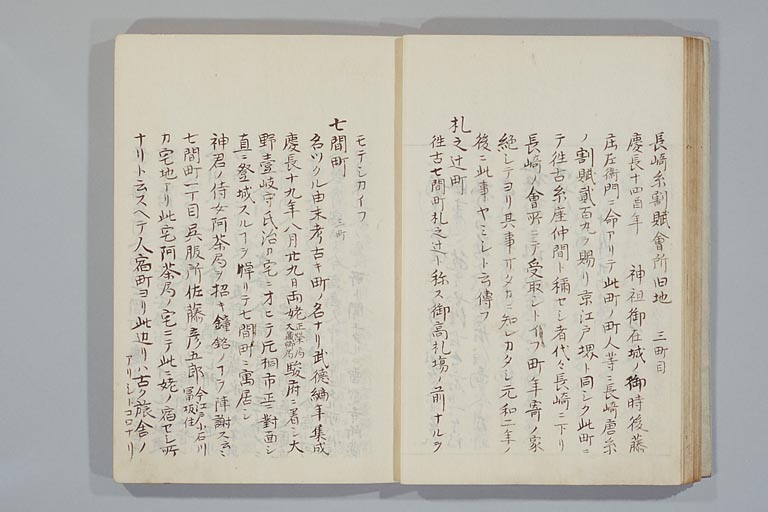 長崎糸割賦會所旧地　三町目
慶長十四酉年　神祖御在城ノ御時後藤
庄左衛門ニ命アリテ此町ノ町人等ニ長崎唐糸
ノ割賦貳百丸ヲ賜リ京江戸堺ト同シク此町ニ
テ往古糸座仲間ト稱セシ者代々長崎ニ下リ
長崎ノ會所ニテ受取シトイフ町年寄ノ家
絶シテヨリ其事サタカニ知レカタシ元和二年ノ
後ニ此事ヤミシト云傳フ
札之辻町
往古七間町札之辻ト称ス御高札場ノ前ナルヲ
モテシカイフ
七間町　三町
名ツクル由来考古キ町ノ名ナリ武徳編年集成
慶長十九年八月廿九日両姥正榮尼大藏卿局駿府ニ着シ大
野壹岐守氏治カ宅ニオヒテ片桐市正ニ對面シ
直ニ登城スルヲ憚リテ七間町ニ寓居シ
神君ノ侍女阿茶局ヲ招キ鐘銘ノヿヲ陣謝ス云々
七間町一丁目呉服所佐藤彦五郎今江戸小石川冨坂住
カ宅地ナリ此宅阿茶局ノ宅ニテ此ニ姥ノ宿セシ所
ナリト云スヘテ人宿町ヨリ此辺リハ古ク旅舎ノ
アリシトコロナリ